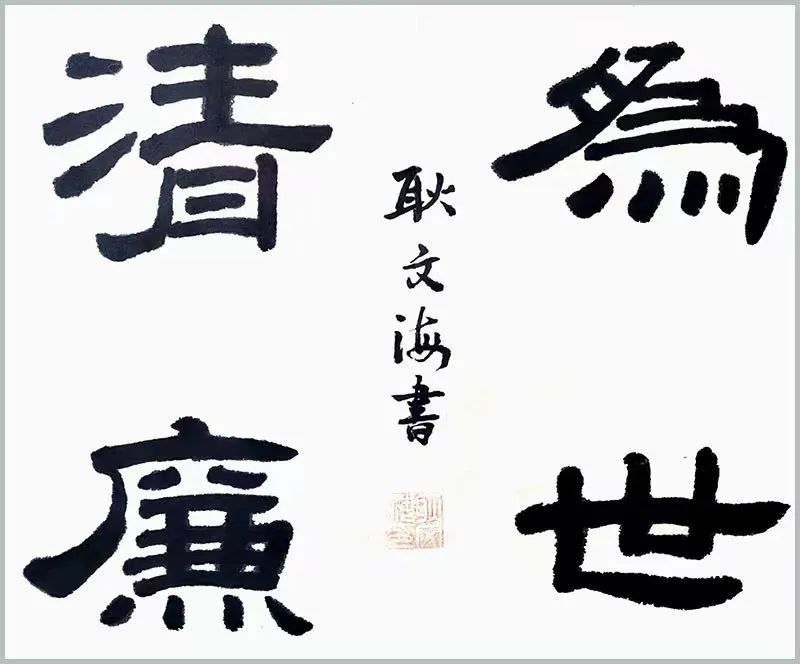 為世
耿文海書
清廉